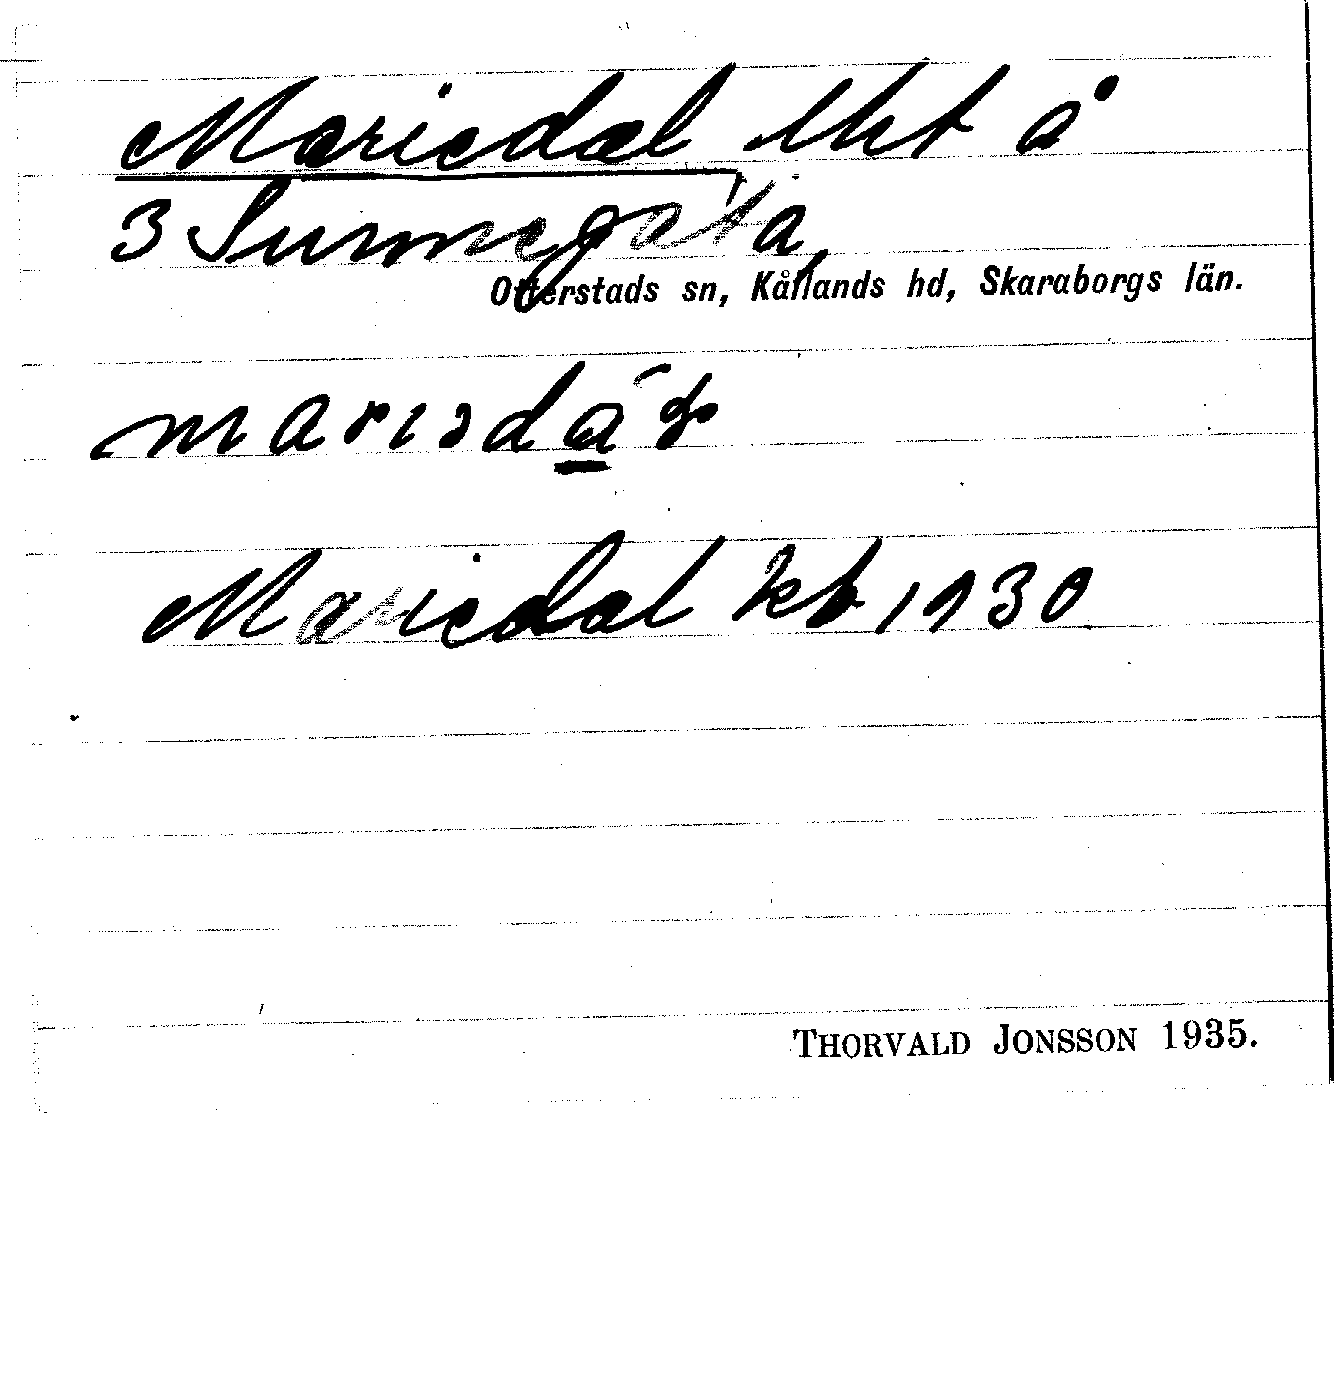 Mariedal lht å
3 Surmegata,
Otterstads sn, Kållands hd, Skaraborgs län.
Mariedal kb 1930
THORVALD JONSSON 1935.